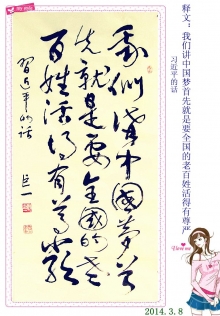 释文：我们讲中国梦首先就是要全国的老百姓活得有尊严
习近平的话
我们讲中國夢首
先就是要全國的老
百姓活得有尊严
習近平的话
2014. 3. 8